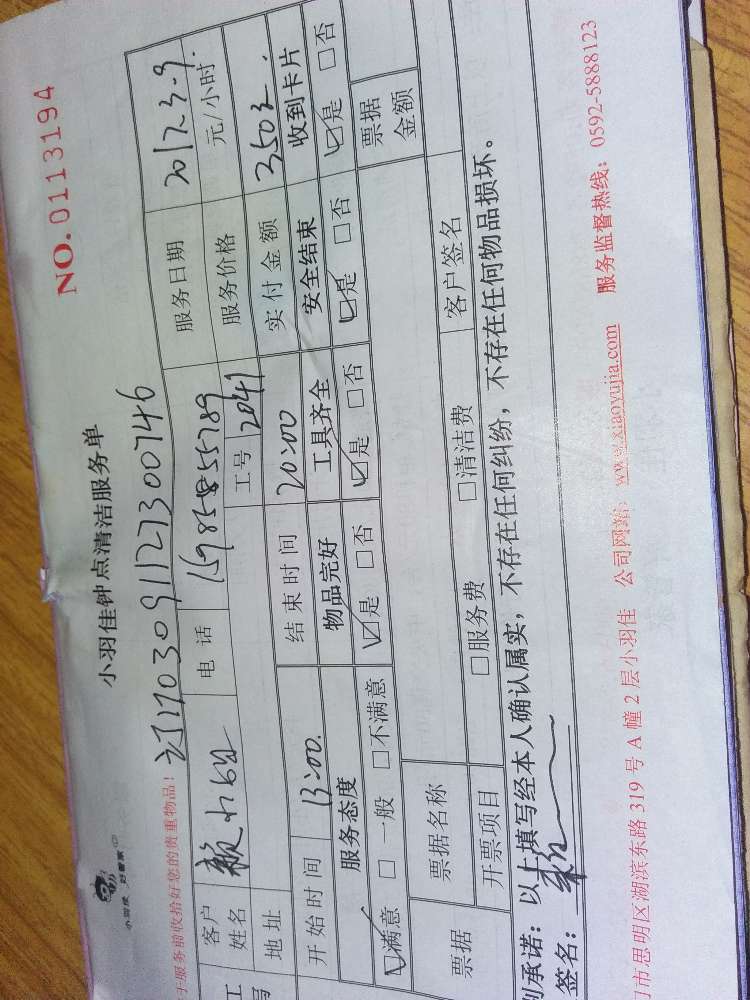 小羽佳钟点清洁服务单
NO.0113194
于服务前收拾好您的贵重物品!
1703091127300746
客户姓名 电话 15985855789 服务日期 2017.3.9
地址 工号 2041 服务价格 元/小时
开始时间 13:00 结束时间 20:00 实付金额 350
服务态度 物品完好 工具齐全 安全结束 收到卡片
☑满意 □一般 □不满意 ☑是 □否 ☑是 □否 ☑是 □否 ☑是 □否
票据 票据名称 票据金额
开票项目 □服务费 □清洁费 客户签名
承诺:以上填写经本人确认属实,不存在任何纠纷,不存在任何物品损坏。
签名:
市思明区湖滨东路 319 号 A 幢 2 层小羽佳 公司网站:www.xiaoyujia.com 服务监督热线:0592-5888123